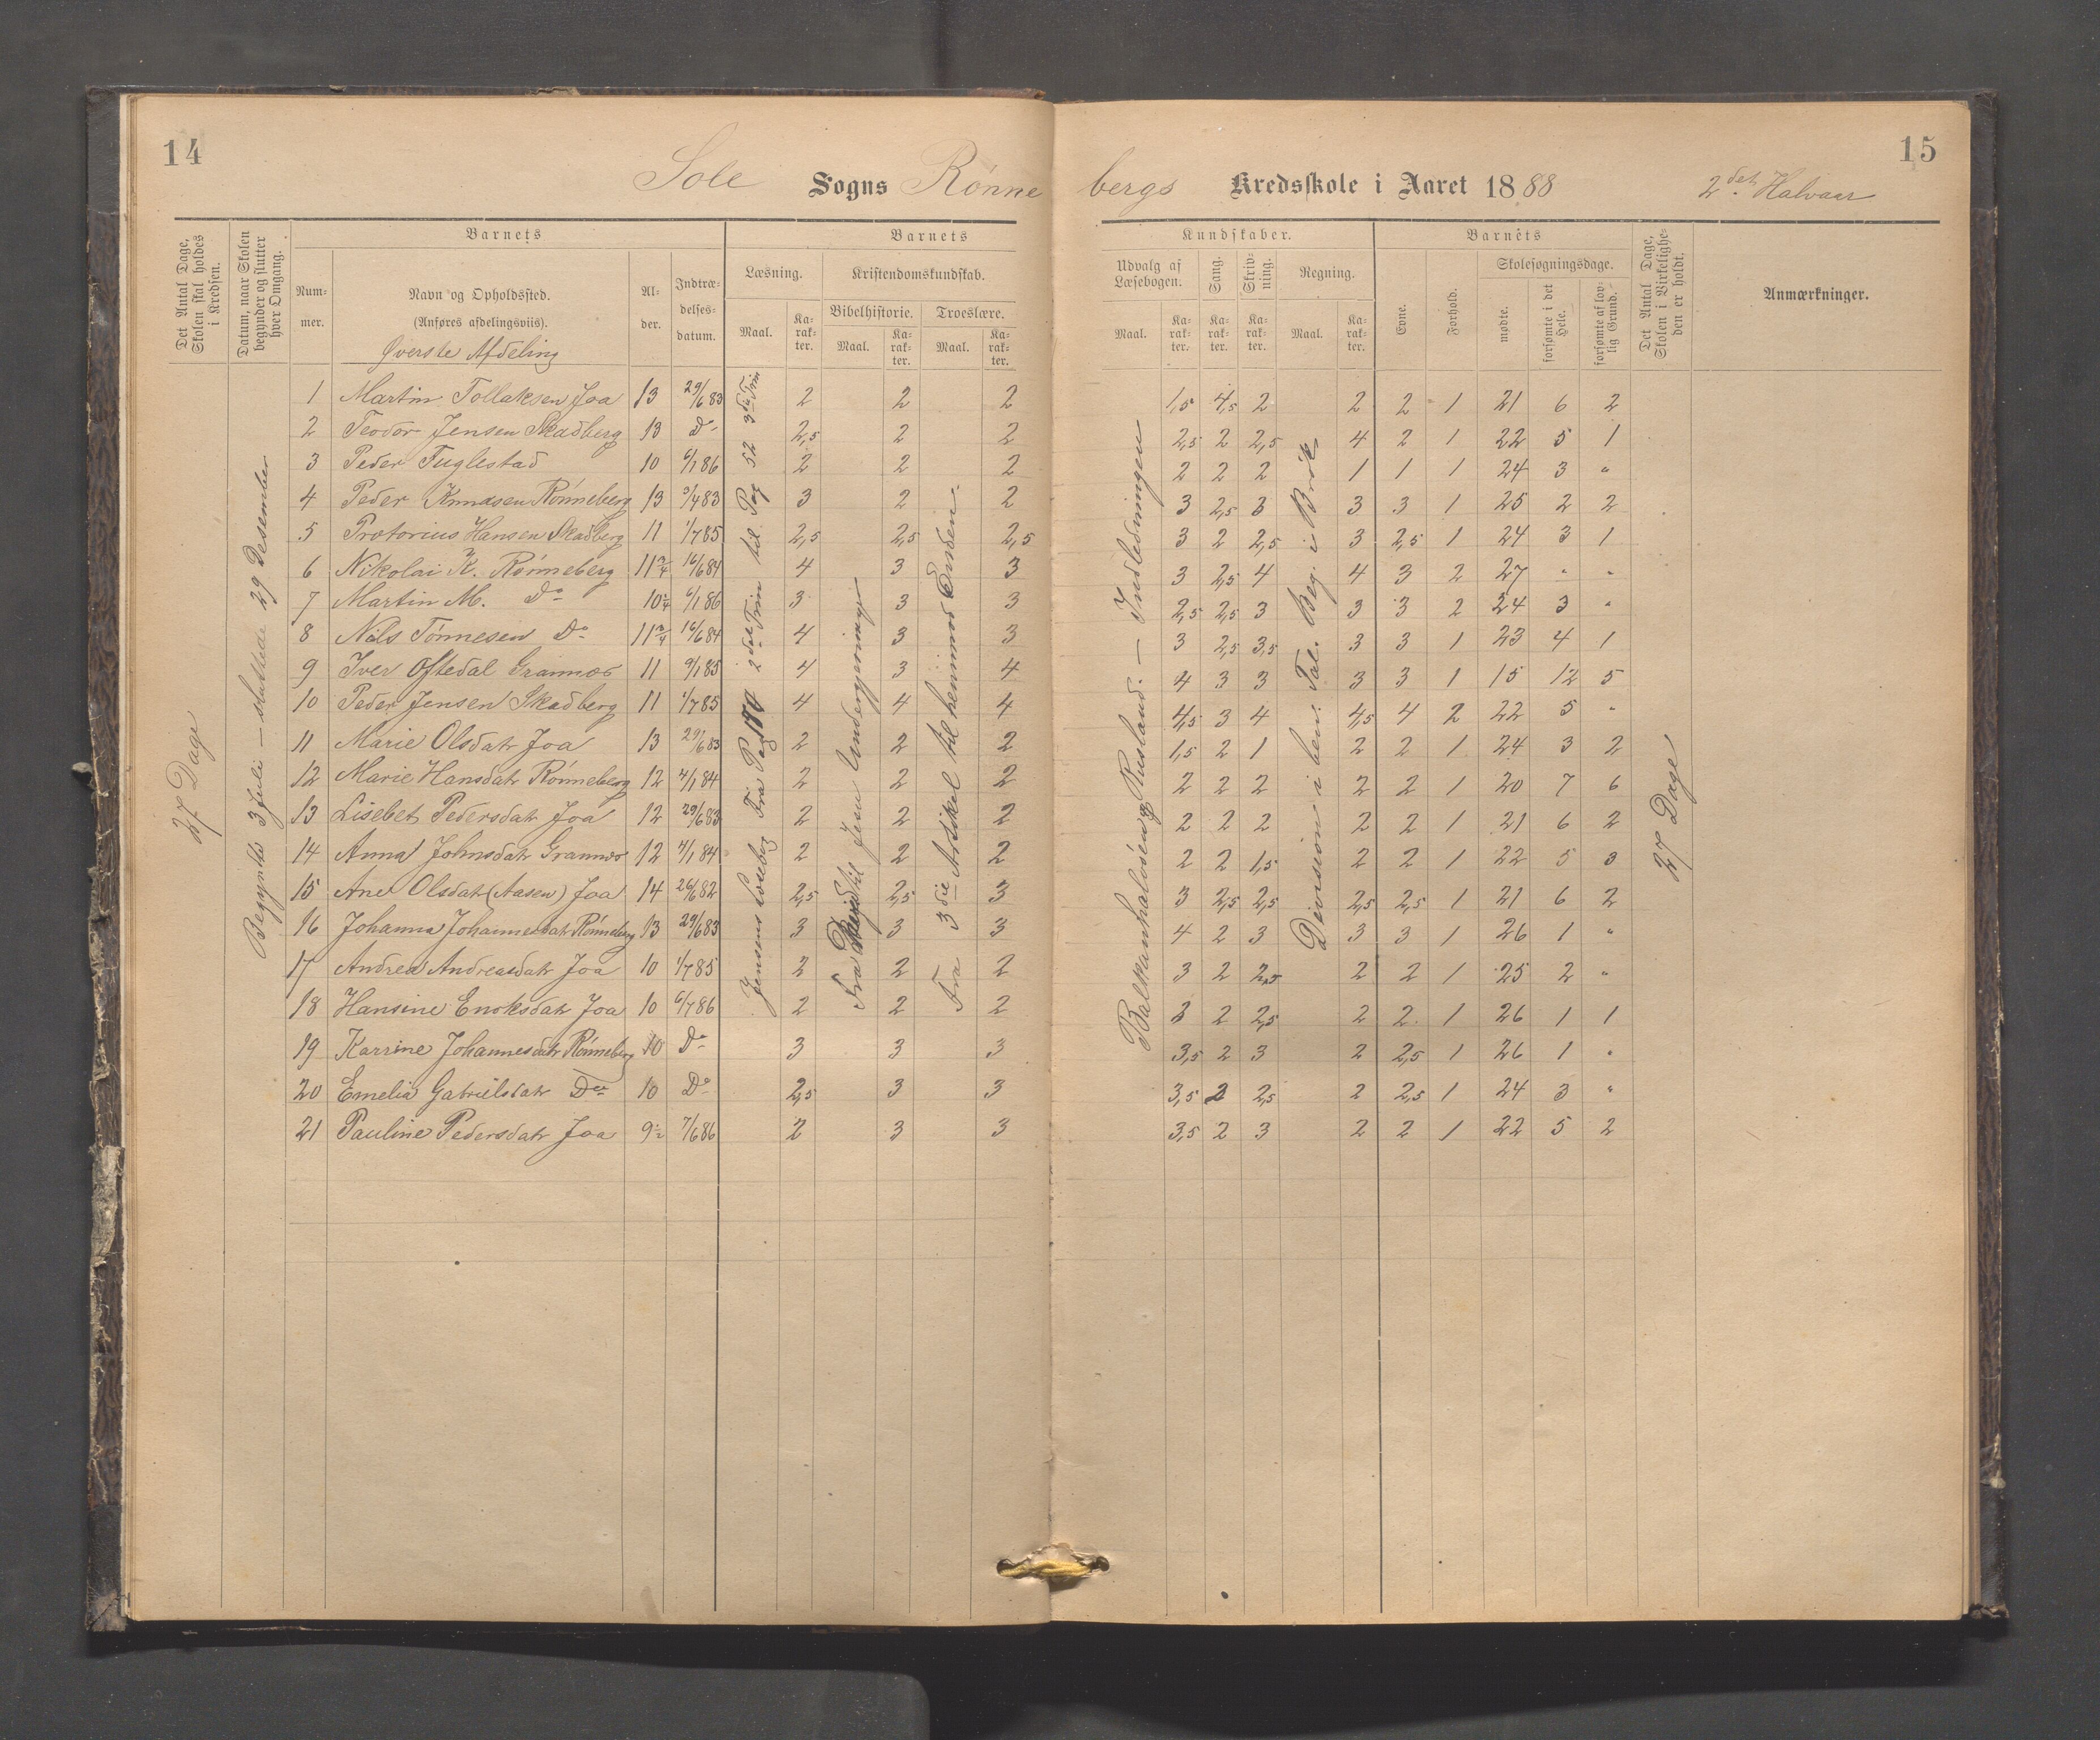 14
15
Sole Sogns Rønnebergs Kredsskole i Aaret 1888 2det Halvaar
Det Antal Dage, Skolen skal holdes i Kredsen.
Datum, naar Skolen begynder og slutter hver Omgang.
Barnets
Barnets
Kundskaber.
Barnets
Num-mer.
Navn og Opholdssted.
(Anføres afdelingsviis).
Øverste Afdeling
Al-der.
Indtræ-delses-datum.
Læsning.
Maal.
Ka-rak-ter.
Kristendomskundskab.
Bibelhistorie.
Maal.
Ka-rak-ter.
Troeslære.
Maal.
Ka-rak-ter.
Udvalg af Læsebogen.
Maal.
Ka-rak-ter.
Sang.
Ka-rak-ter.
Skriv-ning.
Ka-rak-ter.
Regning.
Maal.
Ka-rak-ter.
Evne.
Forhold.
Skolesøgningsdage.
mødte.
forsømte i det Hele.
forsømte af lov-lig Grund.
Det Antal Dage, Skolen i Virkelighe-den er holdt.
Anmærkninger.
27 Dage
Begyndte 3 Juli – sluttede 29 Desember
Jensens Læsebog Fra Pag 170 2det Trin til Pag 52 3die Trin
Fra til Jerus Undergjerninger
Fra 3die Artikel til henimod Enden.
Balkanhaløen og Rusland. – Indledningen
Division i ben. Tal. Beg. i Brøk
27 Dage
1 Martin Tollaksen Joa 13 29/6 83 2 2 2 1,5 4,5 2 2 2 1 21 6 2
2 Teodor Jensen Skadberg 13 Do 2,5 2 2 2,5 2 2,5 4 2 1 22 5 1
3 Peder Fuglestad 10 6/1 86 2 2 2 2 2 2 1 1 1 24 3 "
4 Peder Knudsen Rønneberg 13 3/4 83 3 2 2 3 2,5 3 3 3 1 25 2 2
5 Protorius Hansen Skadberg 11 1/7 85 2,5 2,5 2,5 3 2 2,5 3 2,5 1 24 3 1
6 Nikolai K. Rønneberg 11 3/4 16/6 84 4 3 3 3 2,5 4 4 3 2 27 " "
7 Martin M. Do 10 1/4 6/1 86 3 3 3 2,5 2,5 3 3 3 2 24 3 "
8 Nils Tønnesen Do 11 3/4 16/6 84 4 3 3 3 2,5 3,5 3 3 1 23 4 1
9 Iver Oftedal Grannæs 11 9/1 85 4 3 4 4 3 3 3 3 1 15 12 5
10 Peder Jensen Skadberg 11 1/7 85 4 4 4 4,5 3 4 4,5 4 2 22 5 "
11 Marie Olsdatr Joa 13 29/6 83 2 2 2 1,5 2 1 2 2 1 24 3 2
12 Marie Hansdatr Rønneberg 12 4/1 84 2 2 2 2 2 2 2 2 1 20 7 6
13 Lisebet Pedersdatr Joa 12 29/6 83 2 2 2 2 2 2 2 2 1 21 6 2
14 Anna Johnsdatr Grannæs 12 4/1 84 2 2 2 2 2 1,5 2 2 1 22 5 3
15 Ane Olsdatr (Aasen) Joa 14 26/6 82 2,5 2,5 3 3 2,5 2,5 2,5 2,5 1 21 6 2
16 Johanna Johannesdatr Rønneberg 13 29/6 83 3 3 3 4 2 3 3 3 1 26 1 "
17 Andrea Andreasdatr Joa 10 1/7 85 2 2 2 3 2 2,5 2 2 1 25 2 "
18 Hansine Enoksdatr Joa 10 6/7 86 2 2 2 3 2 2,5 2 2 1 26 1 1
19 Karrine Johannesdatr Rønneberg 10 Do 3 3 3 3,5 2 3 2 2,5 1 26 1 "
20 Emelia Gabrielsdatr Do 10 Do 2,5 3 3 3,5 2 2,5 2 2,5 1 24 3 "
21 Pauline Pedersdatr Joa 9 1/2 7/6 86 2 3 3 3,5 2 3 2 2 1 22 5 2